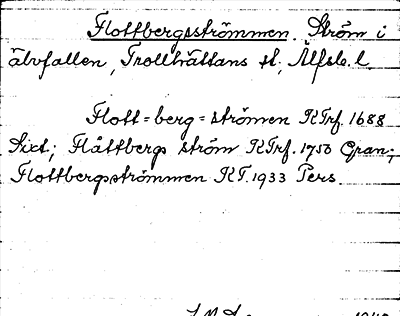 Flottbergsströmmen. Ström i
älvfallen, Trollhättans st, Älfsb. l.
Flott=berg=strömen KTrf. 1688
Sixt; Flåttbergs ström KTrf. 1750 Gran;
Flottbergsströmmen KT. 1933 Pers